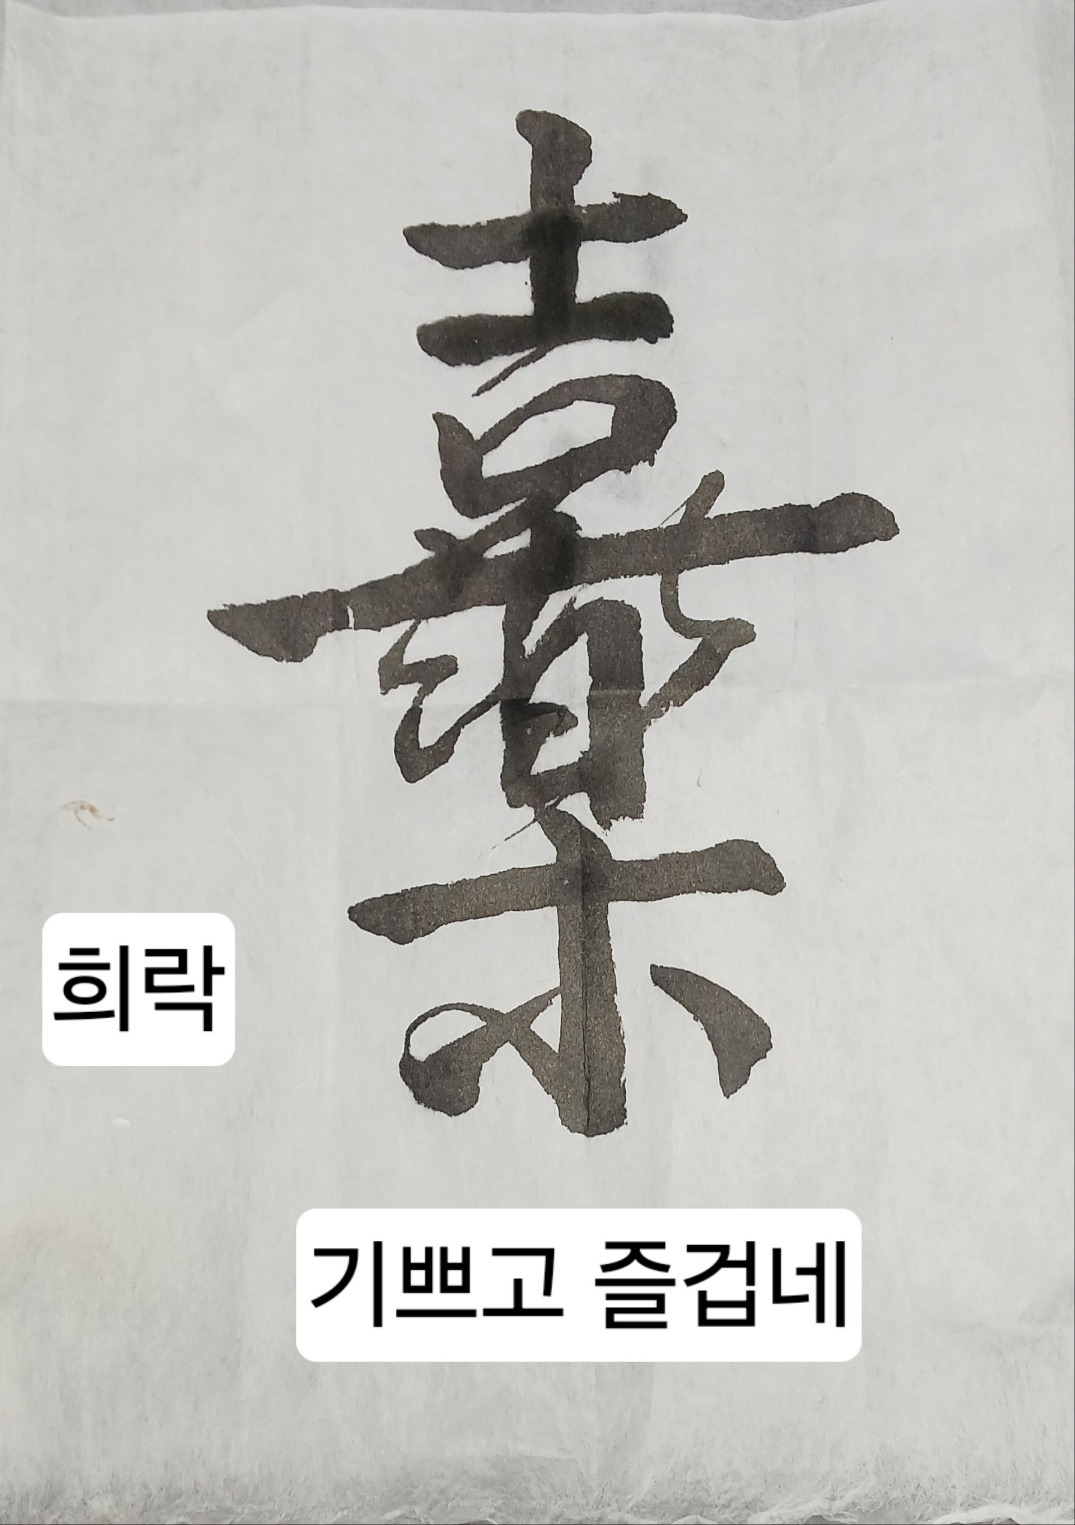 喜樂
희락
기쁘고 즐겁네